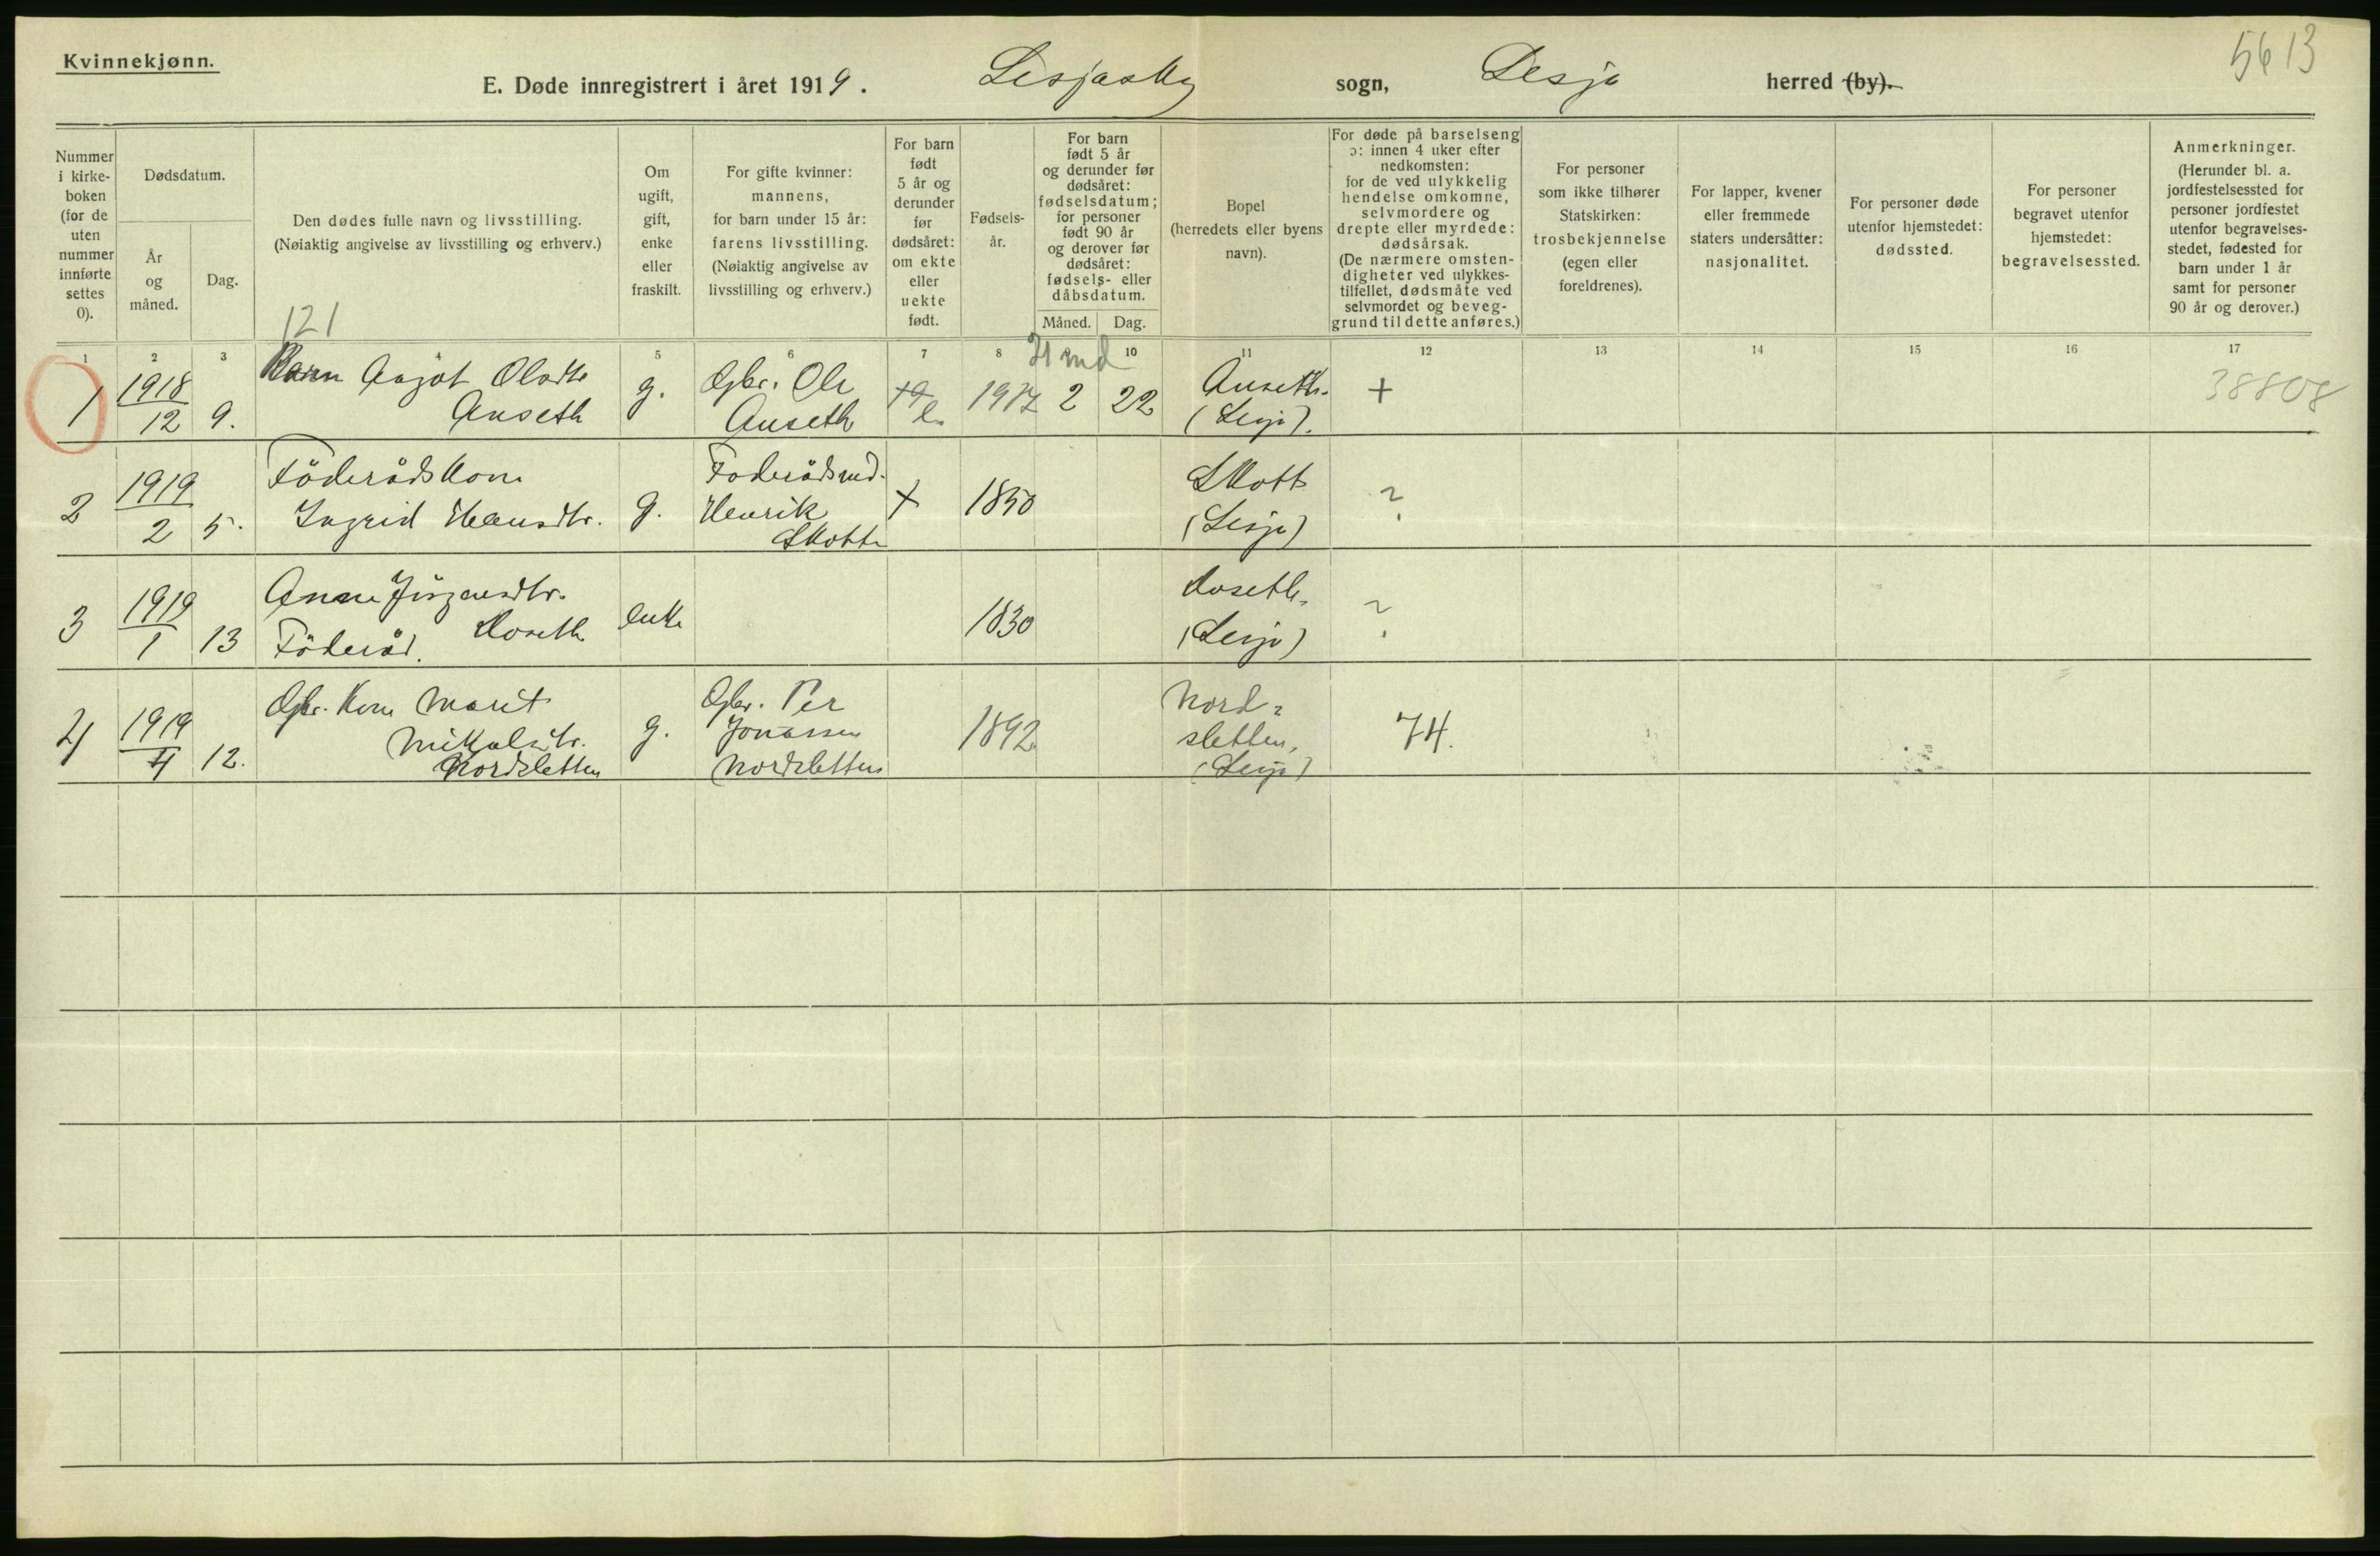 Kvinnekjønn.
5613
E. Døde innregistrert i året 1919. Lesjaskog sogn, Lesja herred (by).
Nummer i kirke- boken (for de uten nummer innførte settes 0).
Dødsdatum.
År og måned.
Dag.
Den dødes fulle navn og livsstilling.
(Nøiaktig angivelse av livsstilling og erhverv.)
121
Om ugift, gift, enke eller fraskilt.
For gifte kvinner: mannens, for barn under 15 år: farens livsstilling. (Nøiaktig angivelse av livsstilling og erhverv.)
For barn født 5 år og derunder før dødsåret: om ekte eller uekte født.
Fødsels- år.
For barn født 5 år og derunder før dødsåret: fødselsdatum; for personer født 90 år og derover før dødsåret: fødsels- eller dåbsdatum.
Måned.
Dag.
Bopel (herredets eller byens navn).
For døde på barselseng ɔ: innen 4 uker efter nedkomsten: for de ved ulykkelig hendelse omkomne, selvmordere og drepte eller myrdede: dødsårsak. (De nærmere omsten- digheter ved ulykkes- tilfellet, dødsmåte ved selvmordet og beveg- grund til dette anføres.)
For personer som ikke tilhører Statskirken: trosbekjennelse (egen eller foreldrenes).
For lapper, kvener eller fremmede staters undersåtter: nasjonalitet.
For personer døde utenfor hjemstedet: dødssted.
For personer begravet utenfor hjemstedet: begravelsessted.
Anmerkninger. (Herunder bl. a. jordfestelsessted for personer jordfestet utenfor begravelses- stedet, fødested for barn under 1 år samt for personer 90 år og derover.)
1 2 3 4 5 6 7 8 9 10 11 12 13 14 15 16 17
21 md
1 1918 12 9. Barn Angot Olsdtr Anseth g. Gbr. Ole Anseth e. 1917 2 22 Anseth. (Lesja). + 38808
2 1919 2 5. Föderådskone Ingrid Hansdtr. g. Foderådsmd. Henrik Skotte + 1850 Skotte (Lesja) ?
3 1919 1 13 Anne Jörgensdtr. Hoseth Föderåd. enke 1830 Hoseth. (Lesja) ?
4 1919 4 12. Gbr. Kone Marit Mikalsdtr. Nordsletten g. Gbr. Per Jonassen Nordsletten 1892 Nord- sletten, (Lesja) 74.